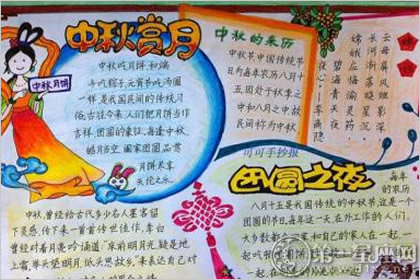 中秋赏月
中秋月饼
中秋吃月饼,和端
午吃粽子,元宵节吃汤圆
一样,是我国民间的传统习
俗,古往今来,人们把月饼当作
吉祥、团圆的象征,每逢中秋,
皓月当空,阖家团圆,品
月饼美享
天伦之乐。
中秋的来历
中秋节,中国传统节
日,为每年农历八月十
五,因处于秋季之
中和八月之中,故
民间称为中秋
云母屏风烛影深
长河渐落晓星沉
嫦娥应悔偷灵药
碧海青天
夜夜心
李商隐
可可手抄报
团圆之夜
每年
的农历
八月十五是我国传统的中秋节,这是一个
团圆的节日,每年这一天,在外工作的人们
大多数都
一起吃
团圆
中秋,曾经给古代多少名人墨客留
下灵感,传下来一首首传世佳作,李白
曾经对着月亮吟诵道:“床前明月光,疑是地上
霜,举头望明月,低头思故乡。”来表达自己对
第一星座网